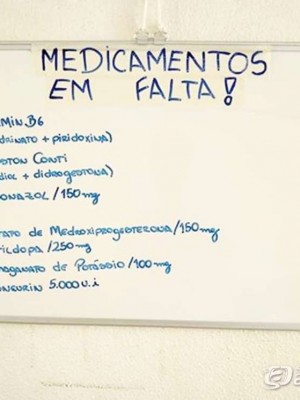 MEDICAMENTOS
EM FALTA!
MIN B6
DRINATO + PIRIDOXINA)
STON CONTI
DIOL + DIDROGESTONA)
ONAZOL /150mg
TATO DE MEDROXIPROGESTERONA /150mg
TILDOPA /250mg
MAGANATO DE POTÁSSIO /100mg
ONEURIN 5.000 U.I